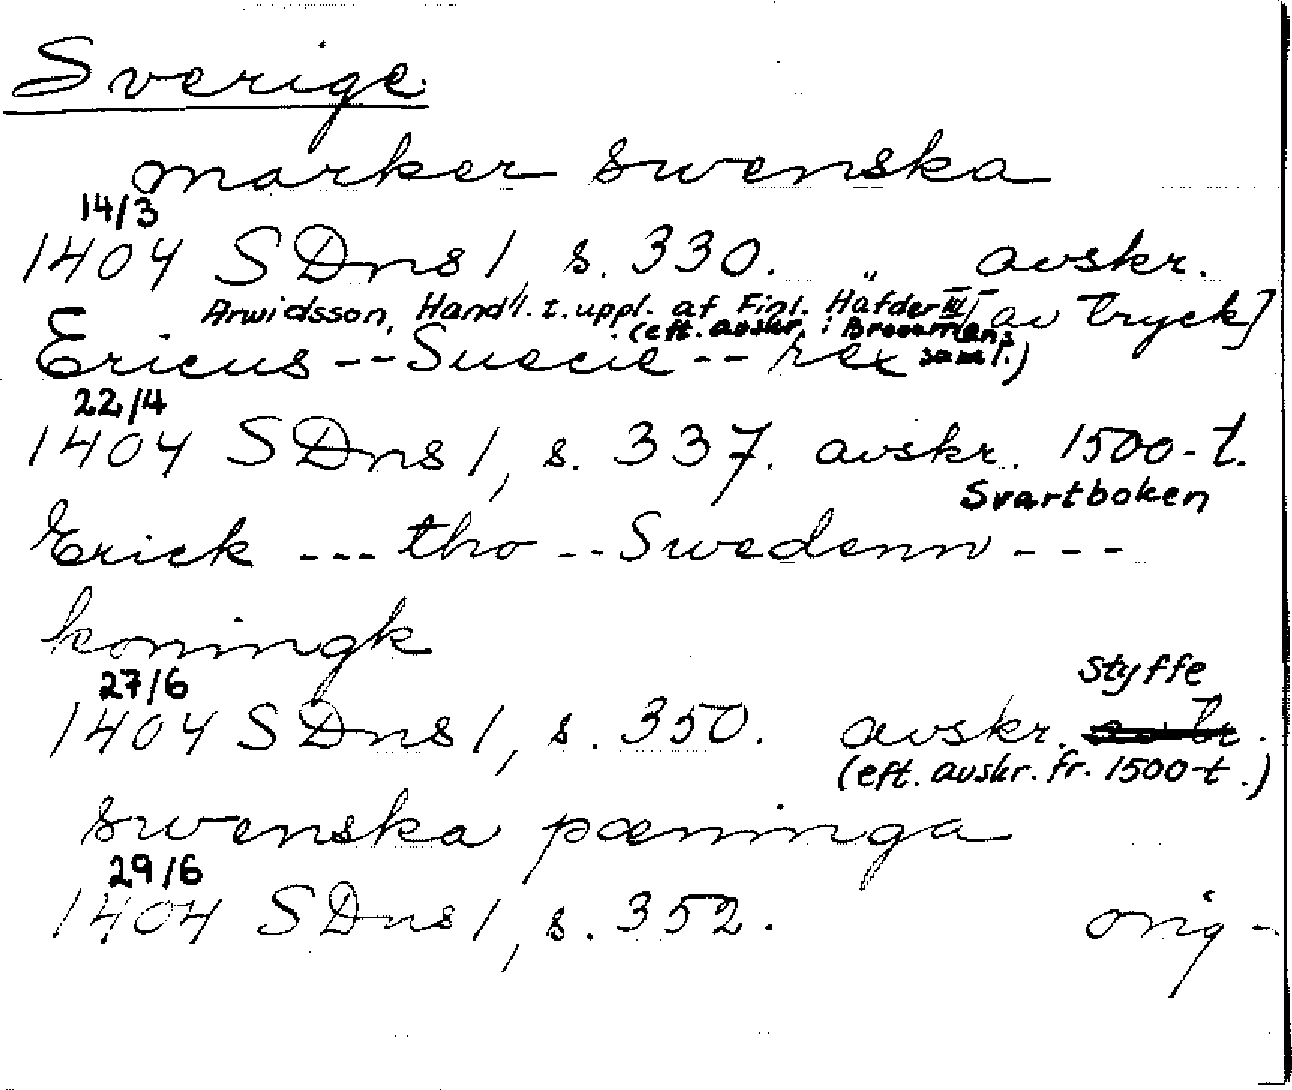 Sverige
marker swenska
14/3
1404 SDns1 s. 330. " avskr.
Arwidsson, Handl. t. uppl. af Finl. Häfder III [av tryck]
(eft. avskr. i Brooman samt.)
Ericus -- Suecie -- rex
22/4
1404 SDns1, s. 337. avskr. 1500-t.
Svartboken
Erick --- tho -- Swedenn ---
koningk
27/6 Styffe
1404 SDns1, s. 350. avskr.
(eft. avskr. fr. 1500-t.)
swenska pæninga
29/6
1404 SDns1, s. 352. orig-